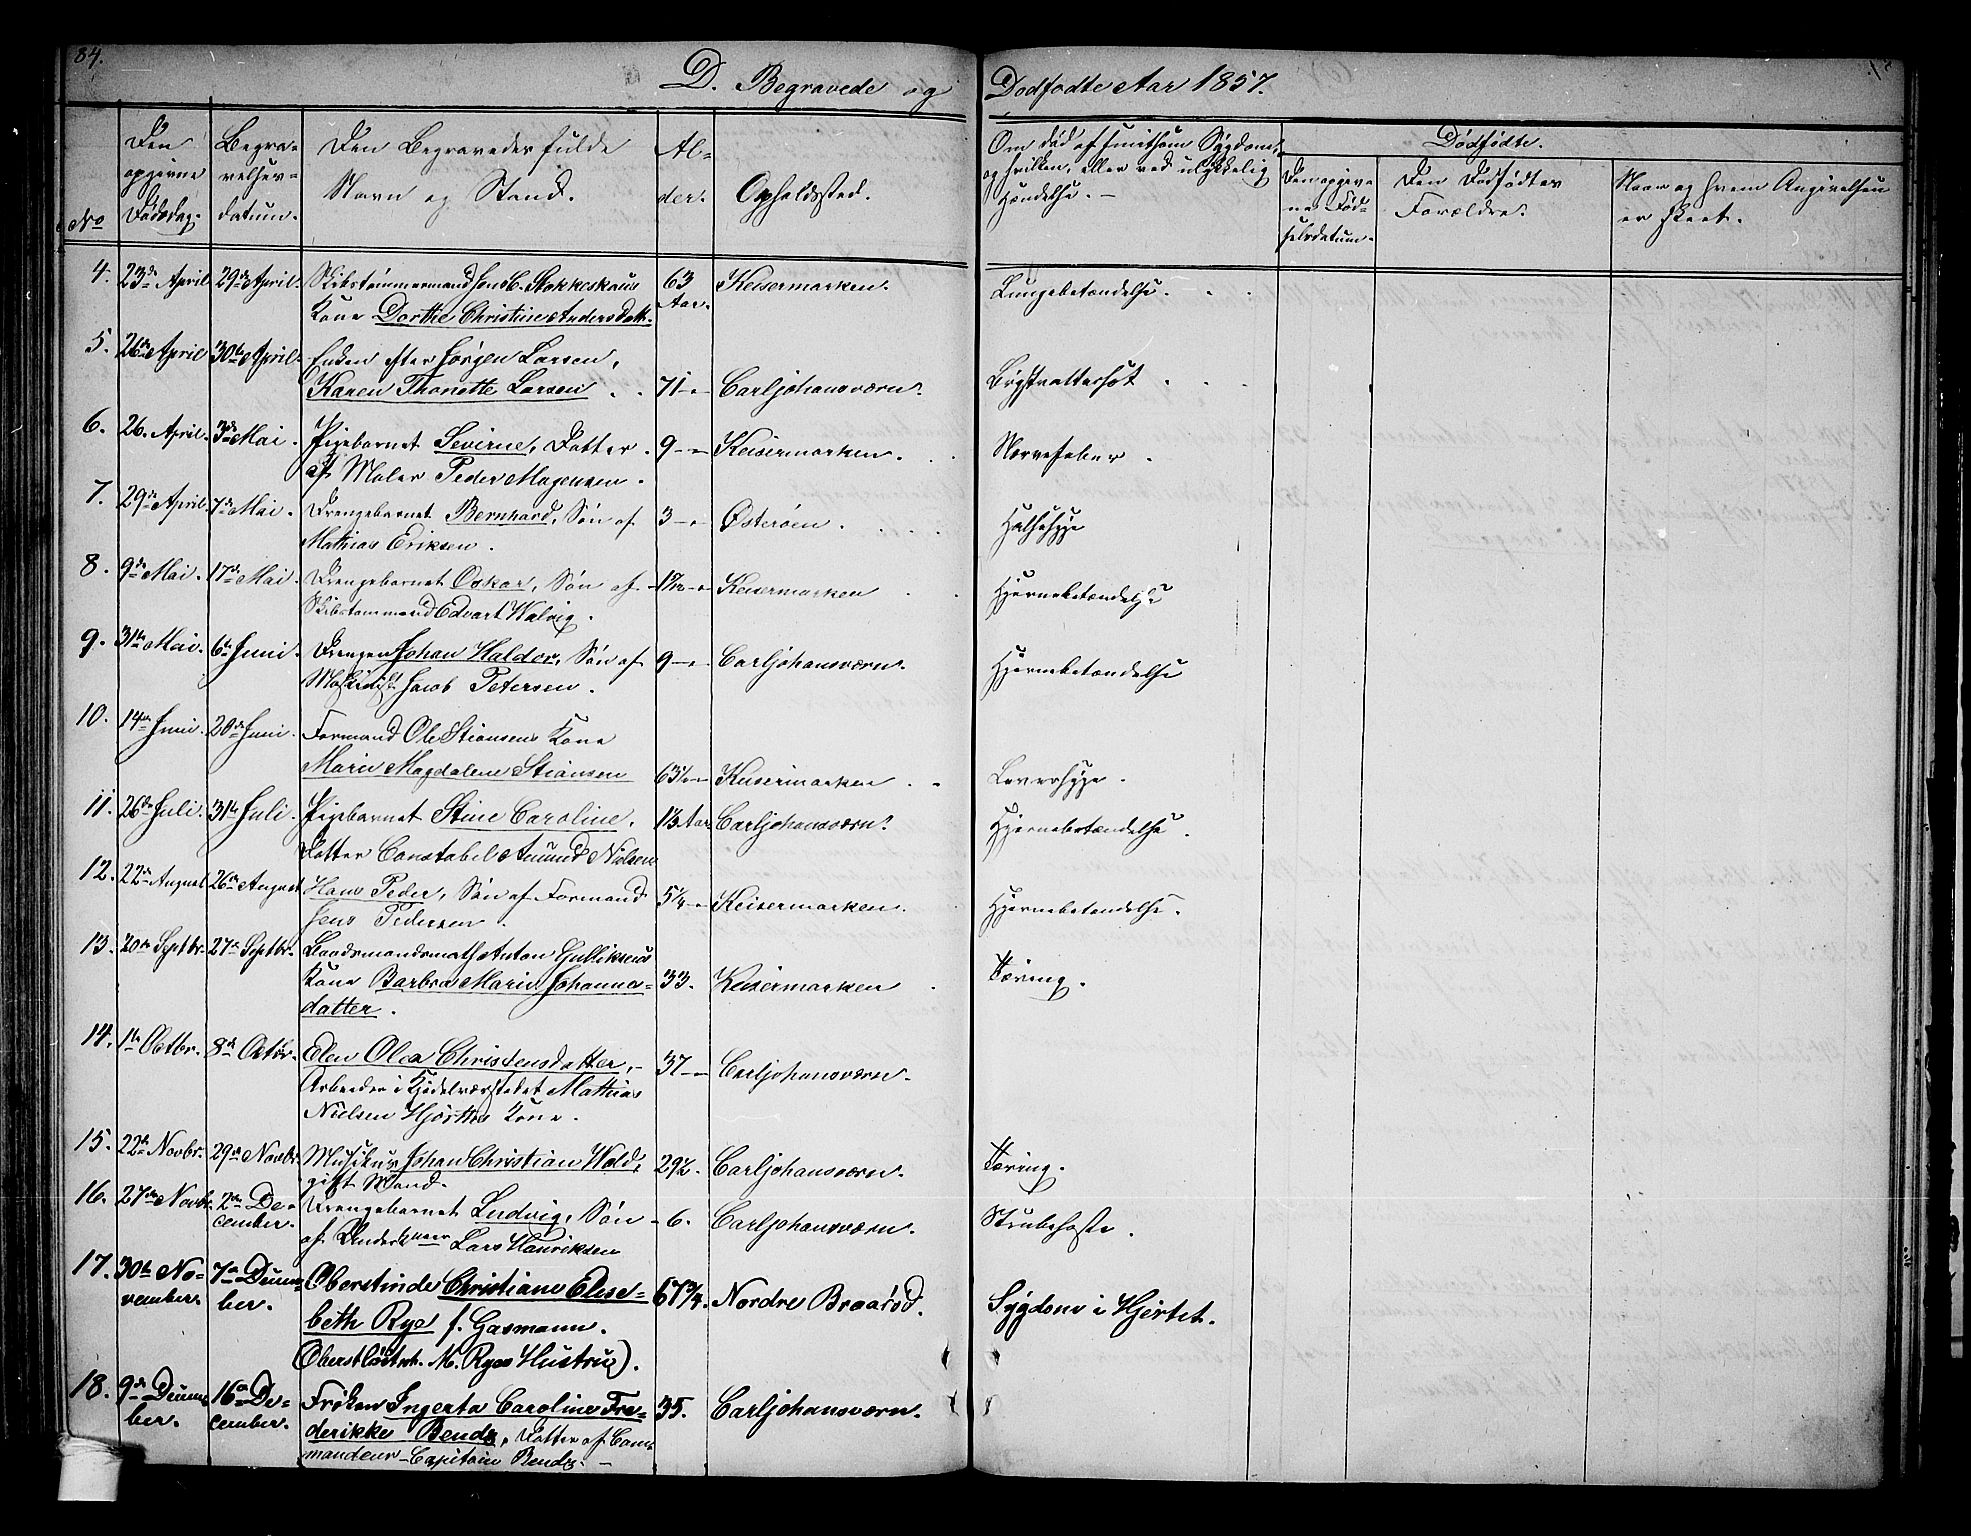 84.
D. Begravede og Dødfødte Aar 1857.
No
Den opgivne Dødsdag.
Begravelses-datum.
Den Begravedes fulde Navn og Stand.
Alder.
Opholdssted.
Om død af smitsom Sygdom, og hvilken, eller ved ulykkelig Hændelse. –
Dødfødte.
Den opgivne Fødselsdatum.
Den Dødfødtes Forældre.
Naar og hvem Angivelsen er skeet.
4. 23de April 29de April. Skibstømmermand Jens C. Stokkeskaus 63 Keisermarken. Lungebetændelse.
Kone Dorthe Christine Andersdatt. Aar.
5. 26de April 30te April. Enken efter Jørgen Larsen,
Karen Thonette Larsen 71 – Carljohansværn. Brystvattersot
6. 26. April. 3de Mai. Pigebarnet Sevirne, Datter 9 – Keisermarken. Nervefeber.
af Maler Peder Mogensen.
7. 29de April. 7de Mai. Drengebarnet Bernhard, Søn af 3 – Østerøen. Halssyge
Mathias Eriksen.
8. 9de Mai. 17de Mai. Drengebarnet Oskar, Søn af Keisermarken Hjernebetændelse
Skibstømmand Edvart Walvig.
9. 31te Mai. 6te Juni. Drengen Johan Haldor, Søn af 9 – Carljohansværn. Hjernebetændelse
Maskinist Jacob Petersen.
10. 14de Juni. 20de Juni. Formand Ole Stiansens Kone
Marie Magdalene Stiansen 63½ – Keisermarken Leversyge.
11. 26de Juli. 31te Juli. Pigebarnet Stine Caroline, Aar Carljohansværn. Hjernebetændelse.
Datter Constabel Amund Nielsen
12. 22de August 26de August Hans Peder, Søn af Formand 5¼ – Keisermarken. Hjernebetændelse.
Jens Pedersen.
13. 20de Septbr. 27de Septbr. Baadsmandsmath Anton Gulliksens
Kone Barbra Marie Johanna- 33. Keisermarken Tæring.
datter.
14. 1te Octbr. 8de Octbr. Elen Olea Christensdatter, – 37 – Carljohansværn.
Arbeider i Kjedelværkstedet Mathias
Nielsen Hjorths Kone.
15. 22de Novbr. 29de Novbr. Musikus Johan Christian Wold, 29½. Carljohansværn. Tæring.
gift Mand.
16. 27de Novbr. 2den De- Drengebarnet Ludvig, Søn 6. Carljohansværn. Strubehoste.
cember. af Lars Henriksen
17. 30te No- 7de Decem- Oberstinde Christiane Elisa- 67¾. Nordre Braarød. Sygdom i Hjertet.
vember. ber. beth Rye f. Gasmann.
(Oberstløitnt. M. Ryes Hustru).
18. 9de Decem- 16de De- Frøken Ingerta Caroline Fre- 35. Carljohansværn.
ber. cember. derikke Bendz, Datter af Com-
mandeur-Capitain Bendz. –